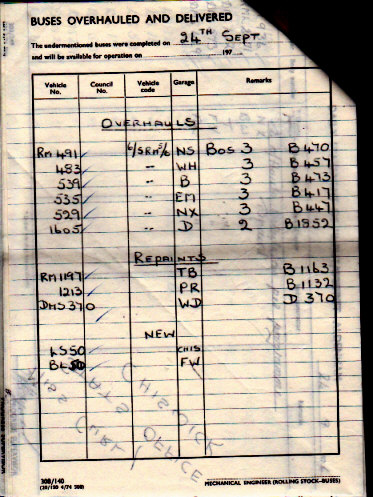 BUSES OVERHAULED AND DELIVERED
The undermentioned buses were completed on 24TH SEPT
and will be available for operation on 197
Vehicle No. Council No. Vehicle code Garage Remarks
OVERHAULS
RM 491 6/5RM5/6 NS BOS 3 B 470
483 -- WH 3 B 457
539 -- B 3 B 473
535 -- EM 3 B 417
529 -- NX 3 B 447
1605 -- D 2 B1852
REPAINTS
RM1197 TB B 1163
1213 PR B 1132
DMS 370 WD D 370
NEW
LS50 CHIS
BL FW
CHISWICK
OFFICE
308/140
(20/150 4/74 508)
MECHANICAL ENGINEER (ROLLING STOCK—BUSES)